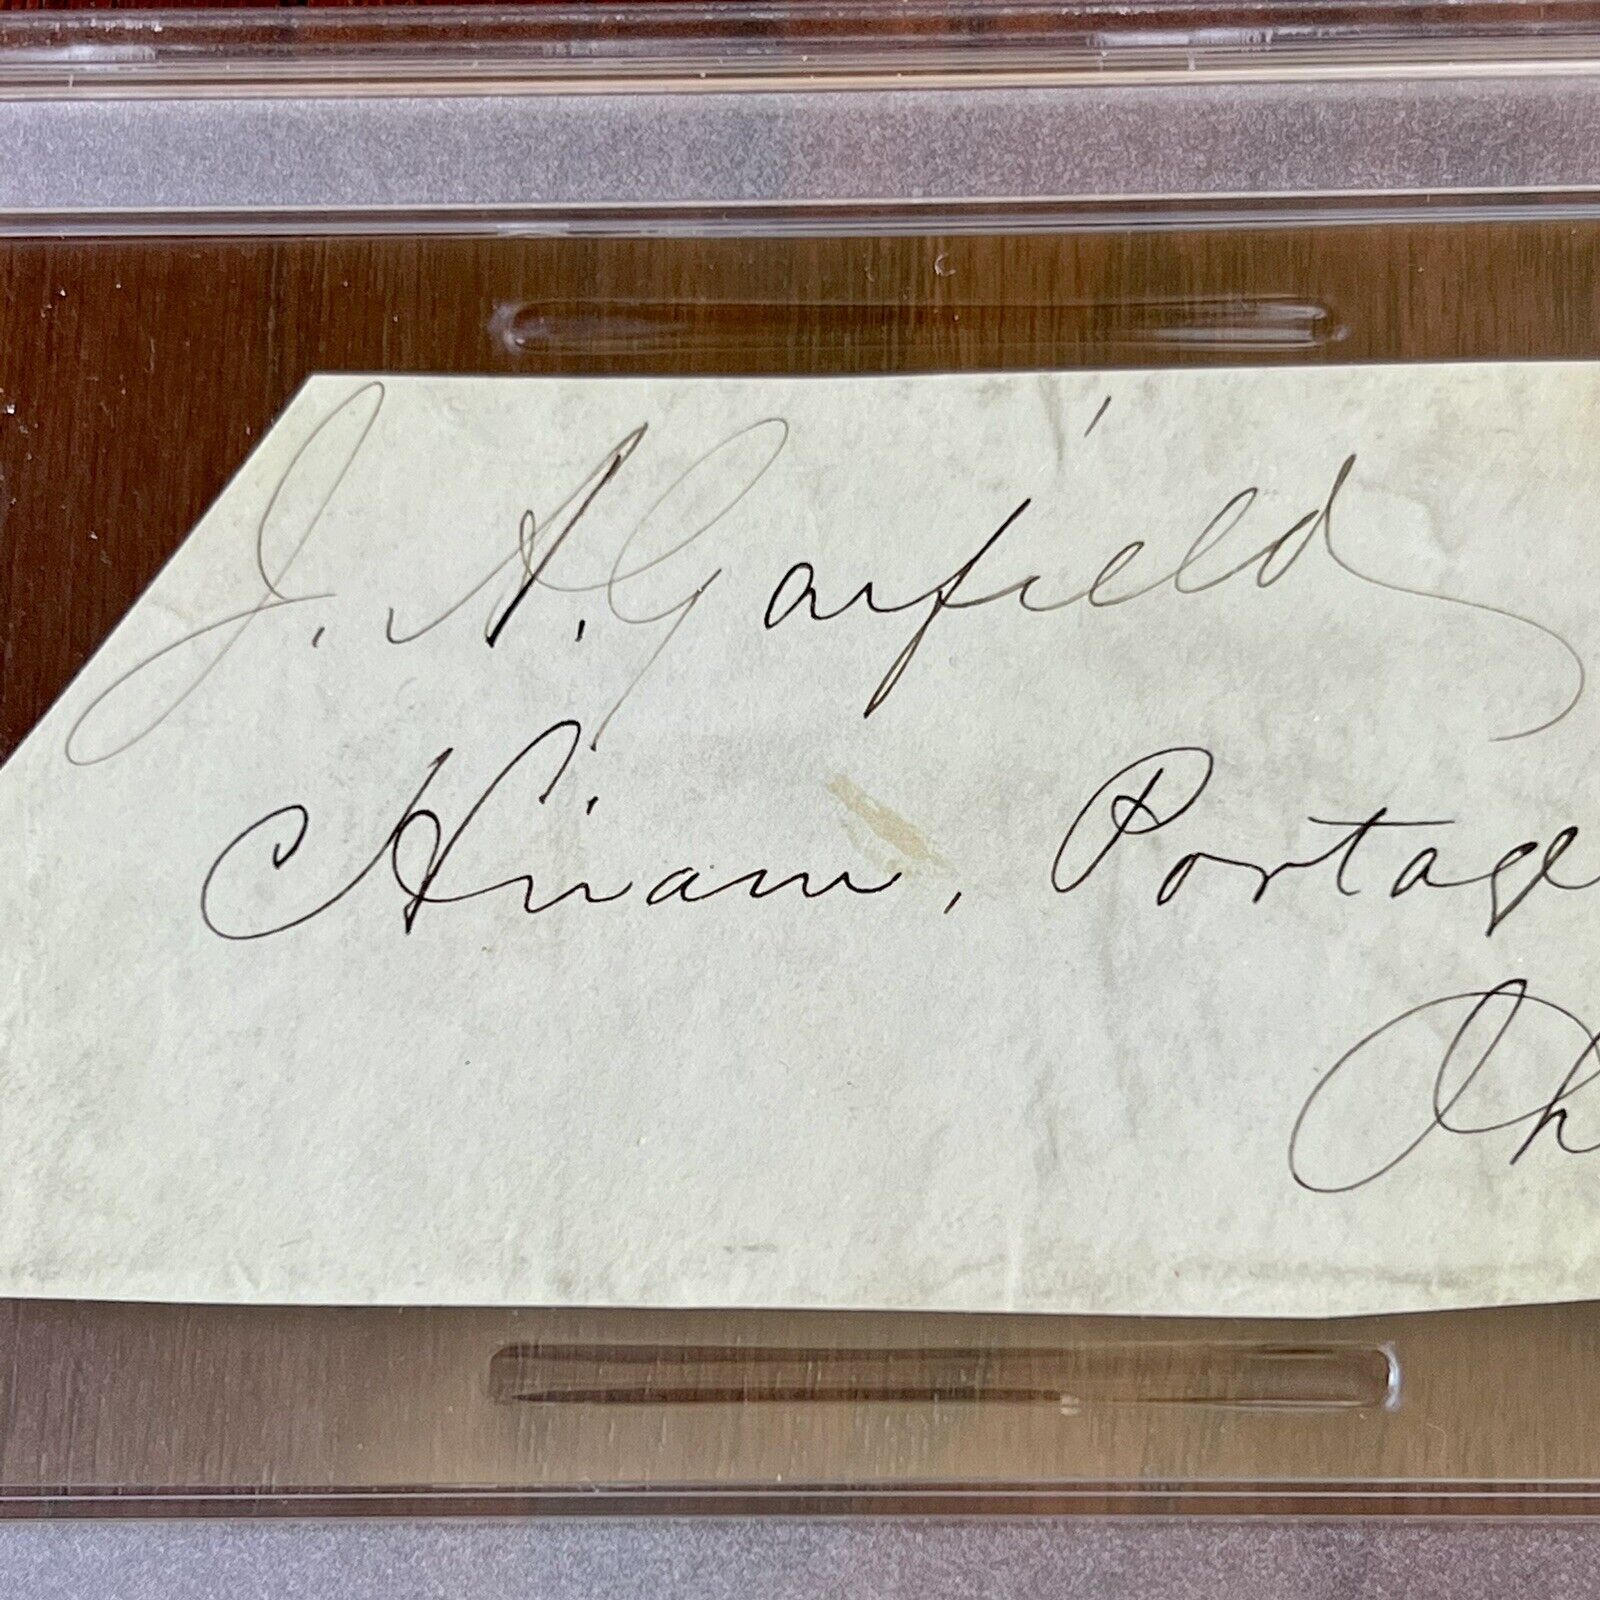 J. A. Garfield
Hiram, Portage
Oh